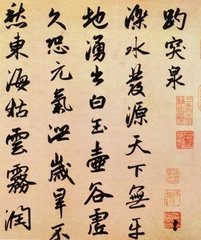 趵突泉
濼水發源天下無平
地湧出白玉壺谷虛
久恐元氣泄歲旱不
愁東海枯雲霧潤